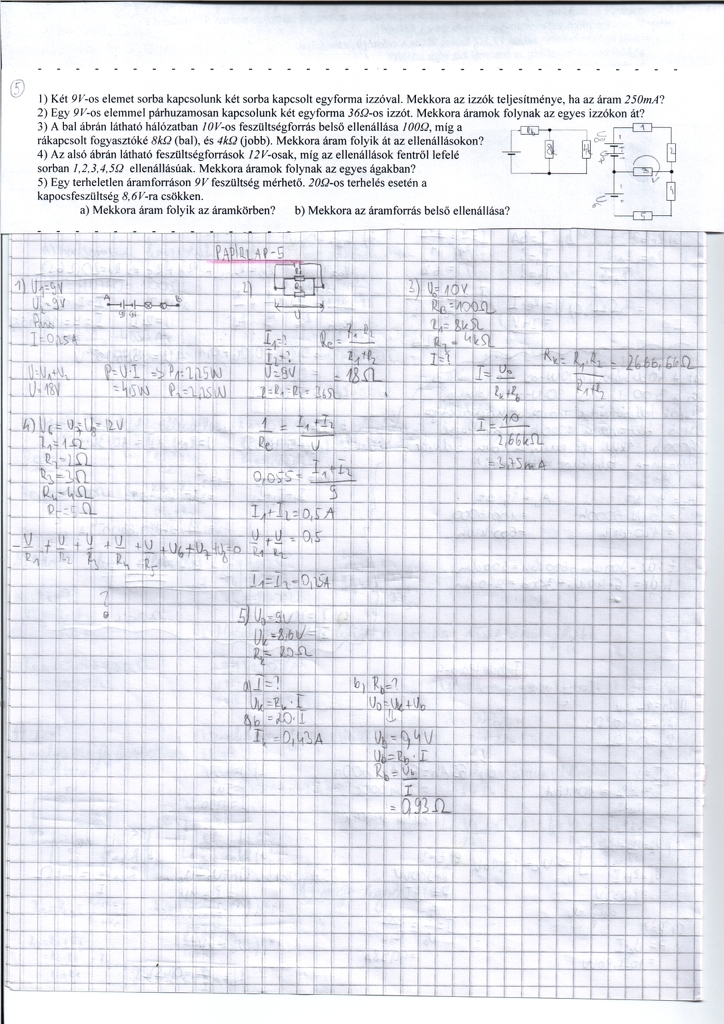 5
1) Két 9V-os elemet sorba kapcsolunk két sorba kapcsolt egyforma izzóval. Mekkora az izzók teljesítménye, ha az áram 250mA?
2) Egy 9V-os elemmel párhuzamosan kapcsolunk két egyforma 36Ω-os izzót. Mekkora áramok folynak az egyes izzókon át?
3) A bal ábrán látható hálózatban 10V-os feszültségforrás belső ellenállása 100Ω, míg a
rákapcsolt fogyasztóké 8kΩ (bal), és 4kΩ (jobb). Mekkora áram folyik át az ellenállásokon?
4) Az alsó ábrán látható feszültségforrások 12V-osak, míg az ellenállások fentről lefelé
sorban 1,2,3,4,5Ω ellenállásúak. Mekkora áramok folynak az egyes ágakban?
5) Egy terheletlen áramforráson 9V feszültség mérhető. 20Ω-os terhelés esetén a
kapocsfeszültség 8,6V-ra csökken.
a) Mekkora áram folyik az áramkörben? b) Mekkora az áramforrás belső ellenállása?
PAPÍRLAP-5
1) U1=9V
U2=9V
I=0,25A
U=U1+U2
U=18V
P=U·I => P1=2,25W
=4,5W P2=2,25W
A B
9V 9V
2)
U
I1=?
I2=?
U=9V
R=R1=R2=36Ω
Re = R1·R2 / R1+R2
= 18Ω
1/Re = I1+I2 / U
0,055 = I1+I2 / 9
I1+I2=0,5A
U/R1 + U/R2 = 0,5
I1=I2=0,25A
3) U0=10V
RB=100Ω
R1=8kΩ
R2=4kΩ
I=?
I = U0 / Rk+Rb
Rk = R1·R2 / R1+R2 = 2666,66Ω
I = 10 / 2,66kΩ
= 3,75mA
4) U6=U7=U8=12V
R1=1Ω
R2=2Ω
R3=3Ω
R4=4Ω
R5=5Ω
-U/R1 + U/R2 + U/R3 + U/R4 + U/R5 + U6+U7+U8=0
?
5) U0=9V
Uk=8,6V
Rk=20Ω
a) I=?
Uk=Rk·I
8,6=20·I
Ik=0,43A
b) Rb=?
U0=Uk+Ub
Ub=0,4V
Ub=Rb·I
Rb=Ub/I
=0,93Ω